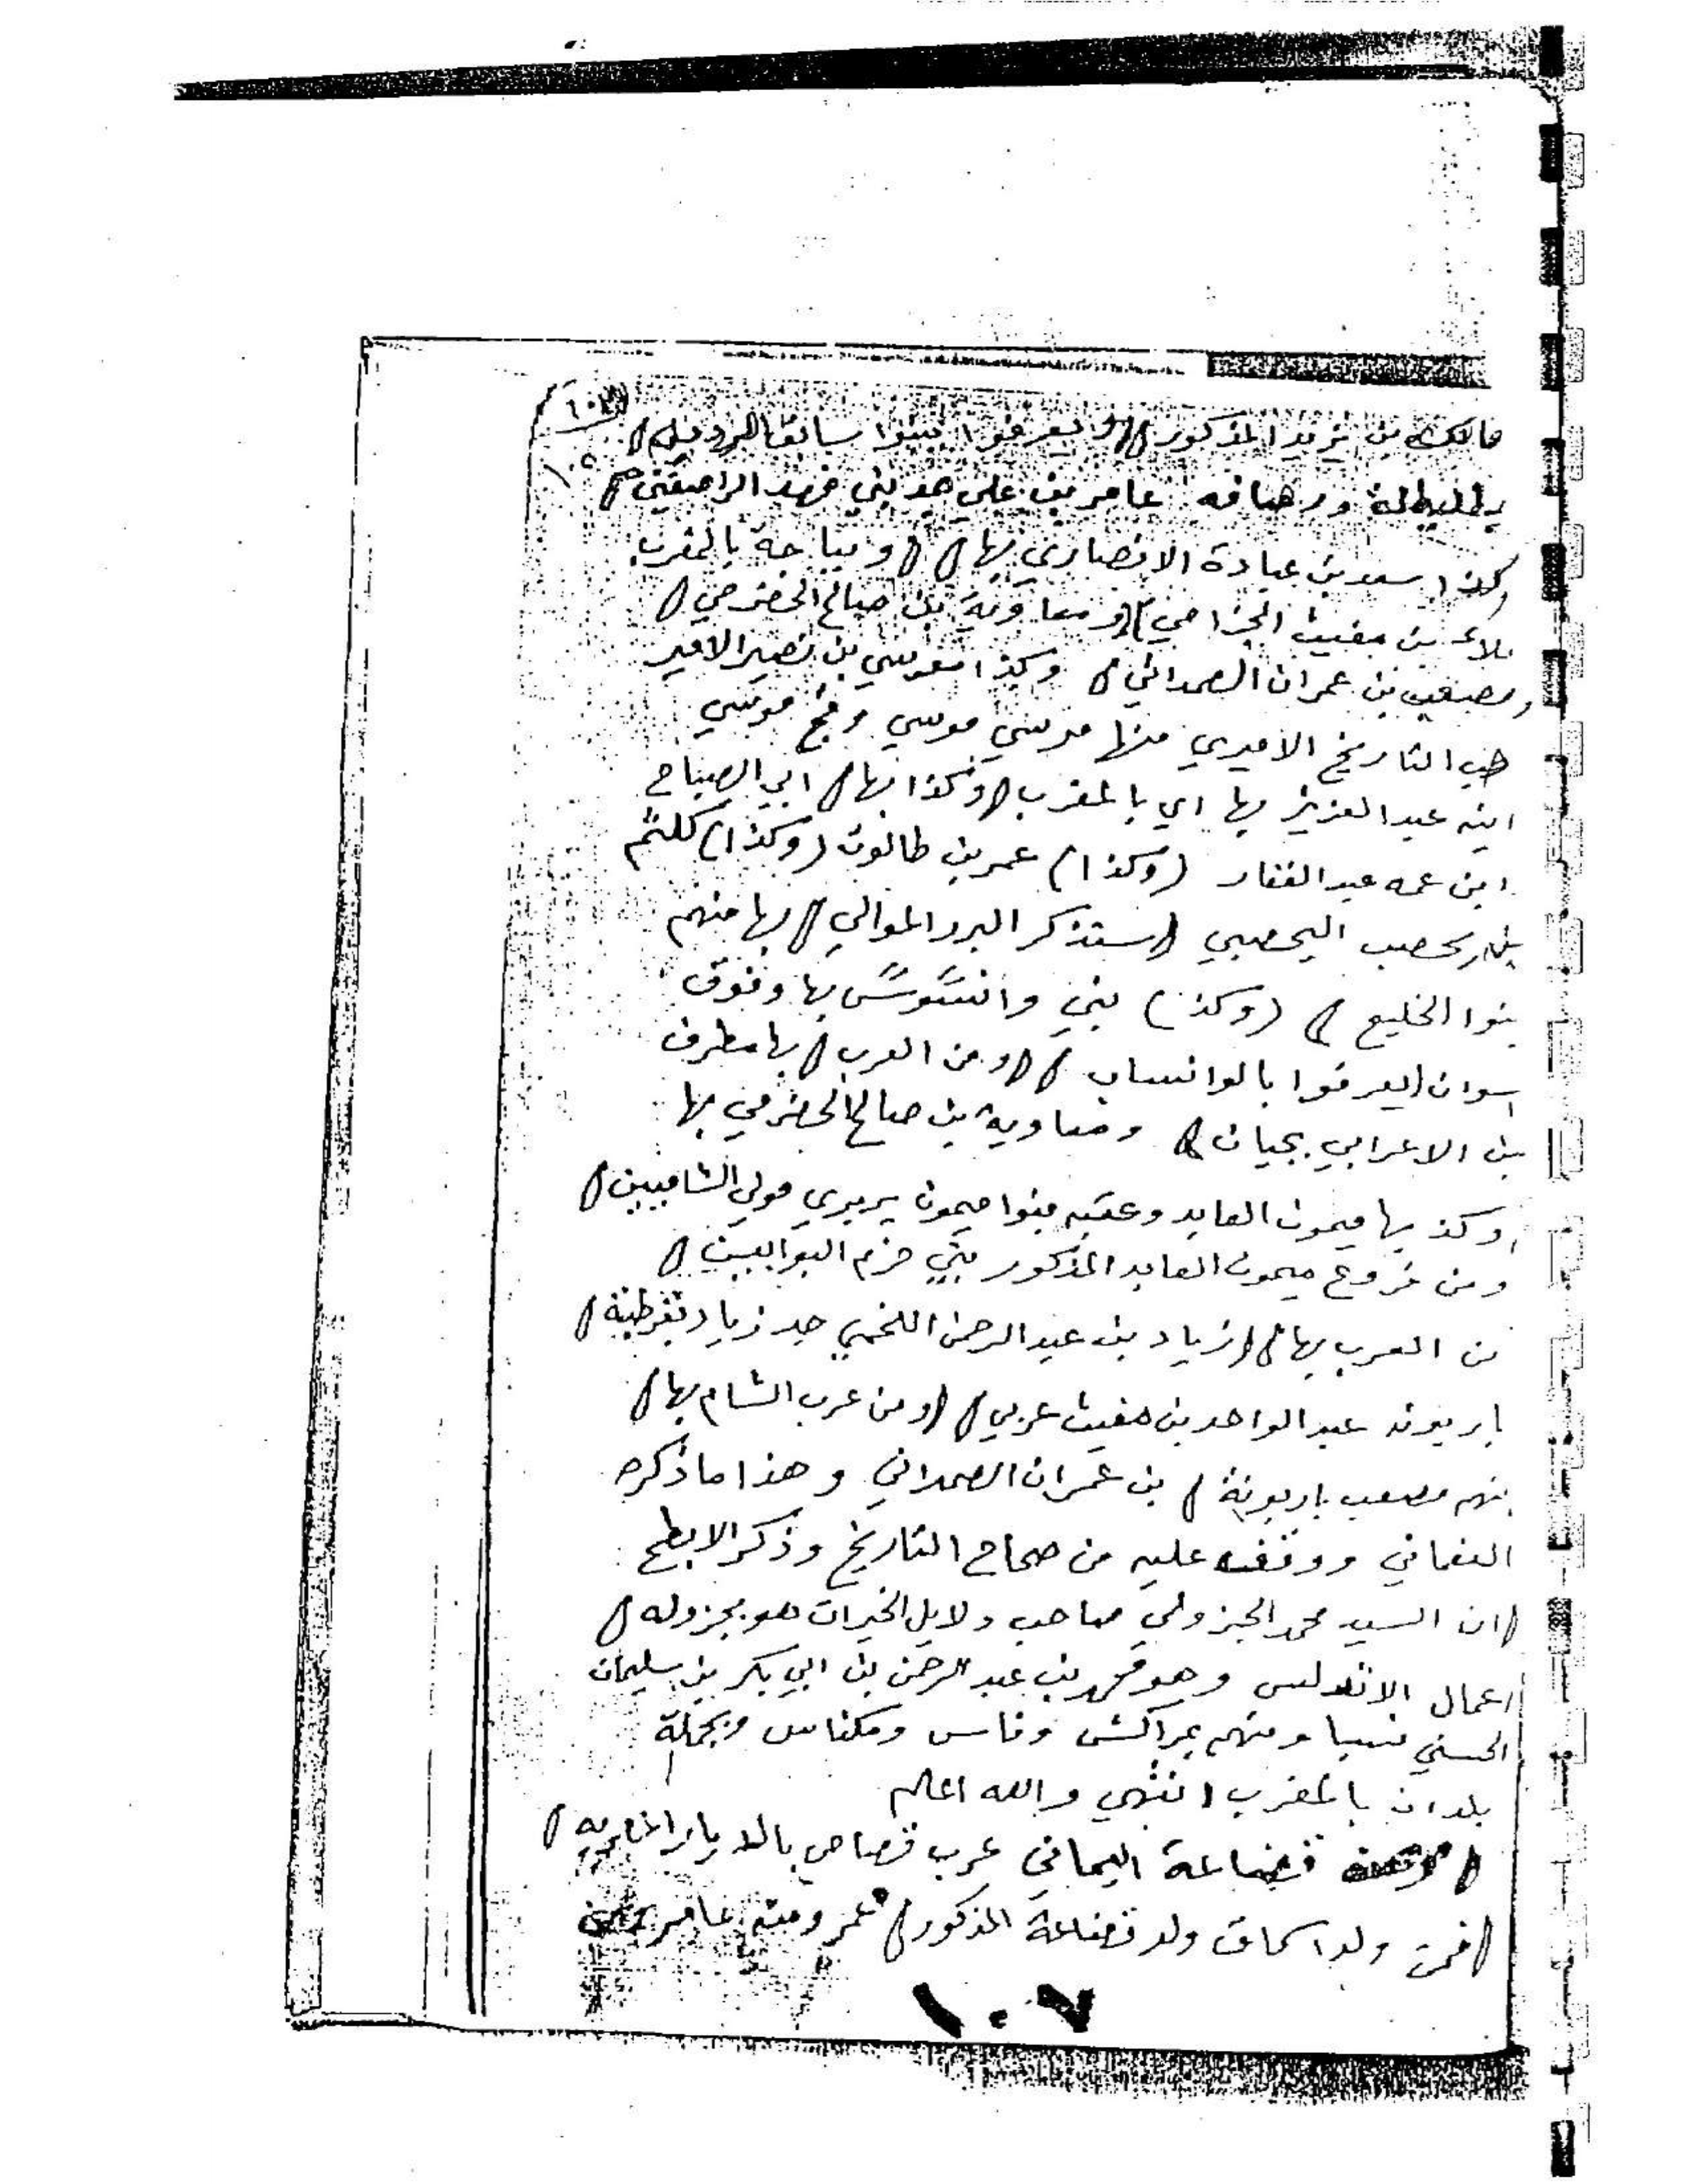 مالك بن يزيد المذكور // ويعرفوا ببنوا سابق
بطليطلة ورصافه عامر بن علي جد بني فهد الراصفين //
وكذا سعد بن عبادة الانصاري بها // // وبباجة بالمغرب
علاء بن مغيث الجزامي // ومعاوية بن صالح الحضرمي //
ومصعب بن عمران الصمداني // وكذا موسي بن نصير الامير
حب التاريخ الاميري منها مرسي موسي وفج موسي
ابنه عبد العزيز بها اي بالمغرب // وكذا بها // ابي الصباح
ابن عمه عبد الغفار (وكذا) عمر بن طالوت (وكذا) كلثم
بن يحصب اليحصبي // ستذكر البرد الموالي // بها منهم
بنوا الخليع // (وكذ) بني وانسوس بها وفوق
اسوان يعرفوا بالوانساب // // ومن العرب // بها مطرف
بن الاعرابي بجيان // ومعاوية بن صالح الحضرمي بها
وكذ بها ميمون العابد وعقبه بنوا ميمون بربري مولي الشاميين //
ومن فروع ميمون العابد المذكور بني حزم البوابيين //
من العرب بها // // زياد بن عبد الرحمن اللخمي جد زياد بقرطبة //
باربونه عبد الواحد بن مغيث عربي // // ومن عرب الشام بها //
منهم مصعب باربونة // بن عمران الصمداني وهذا ما ذكره
النعماني ووقفت عليه من صحاح التاريخ وذكر الابطح
// ان السيد محمد الجزولي صاحب دلايل الخيرات هو بجزوله //
اعمال الاندلس وهو محمد بن عبد الرحمن بن ابي بكر بن سليمان
الحسني نسبا ومنهم بمراكش وفاس ومكناس وبجملة
بلدان بالمغرب انتهي والله اعلم
// قضاعة اليماني عرب قصاص بالديار المصريه //
// فمن ولد اسحاق ولد قضاعة المذكور // عمر ومنه عامر
١٠٧